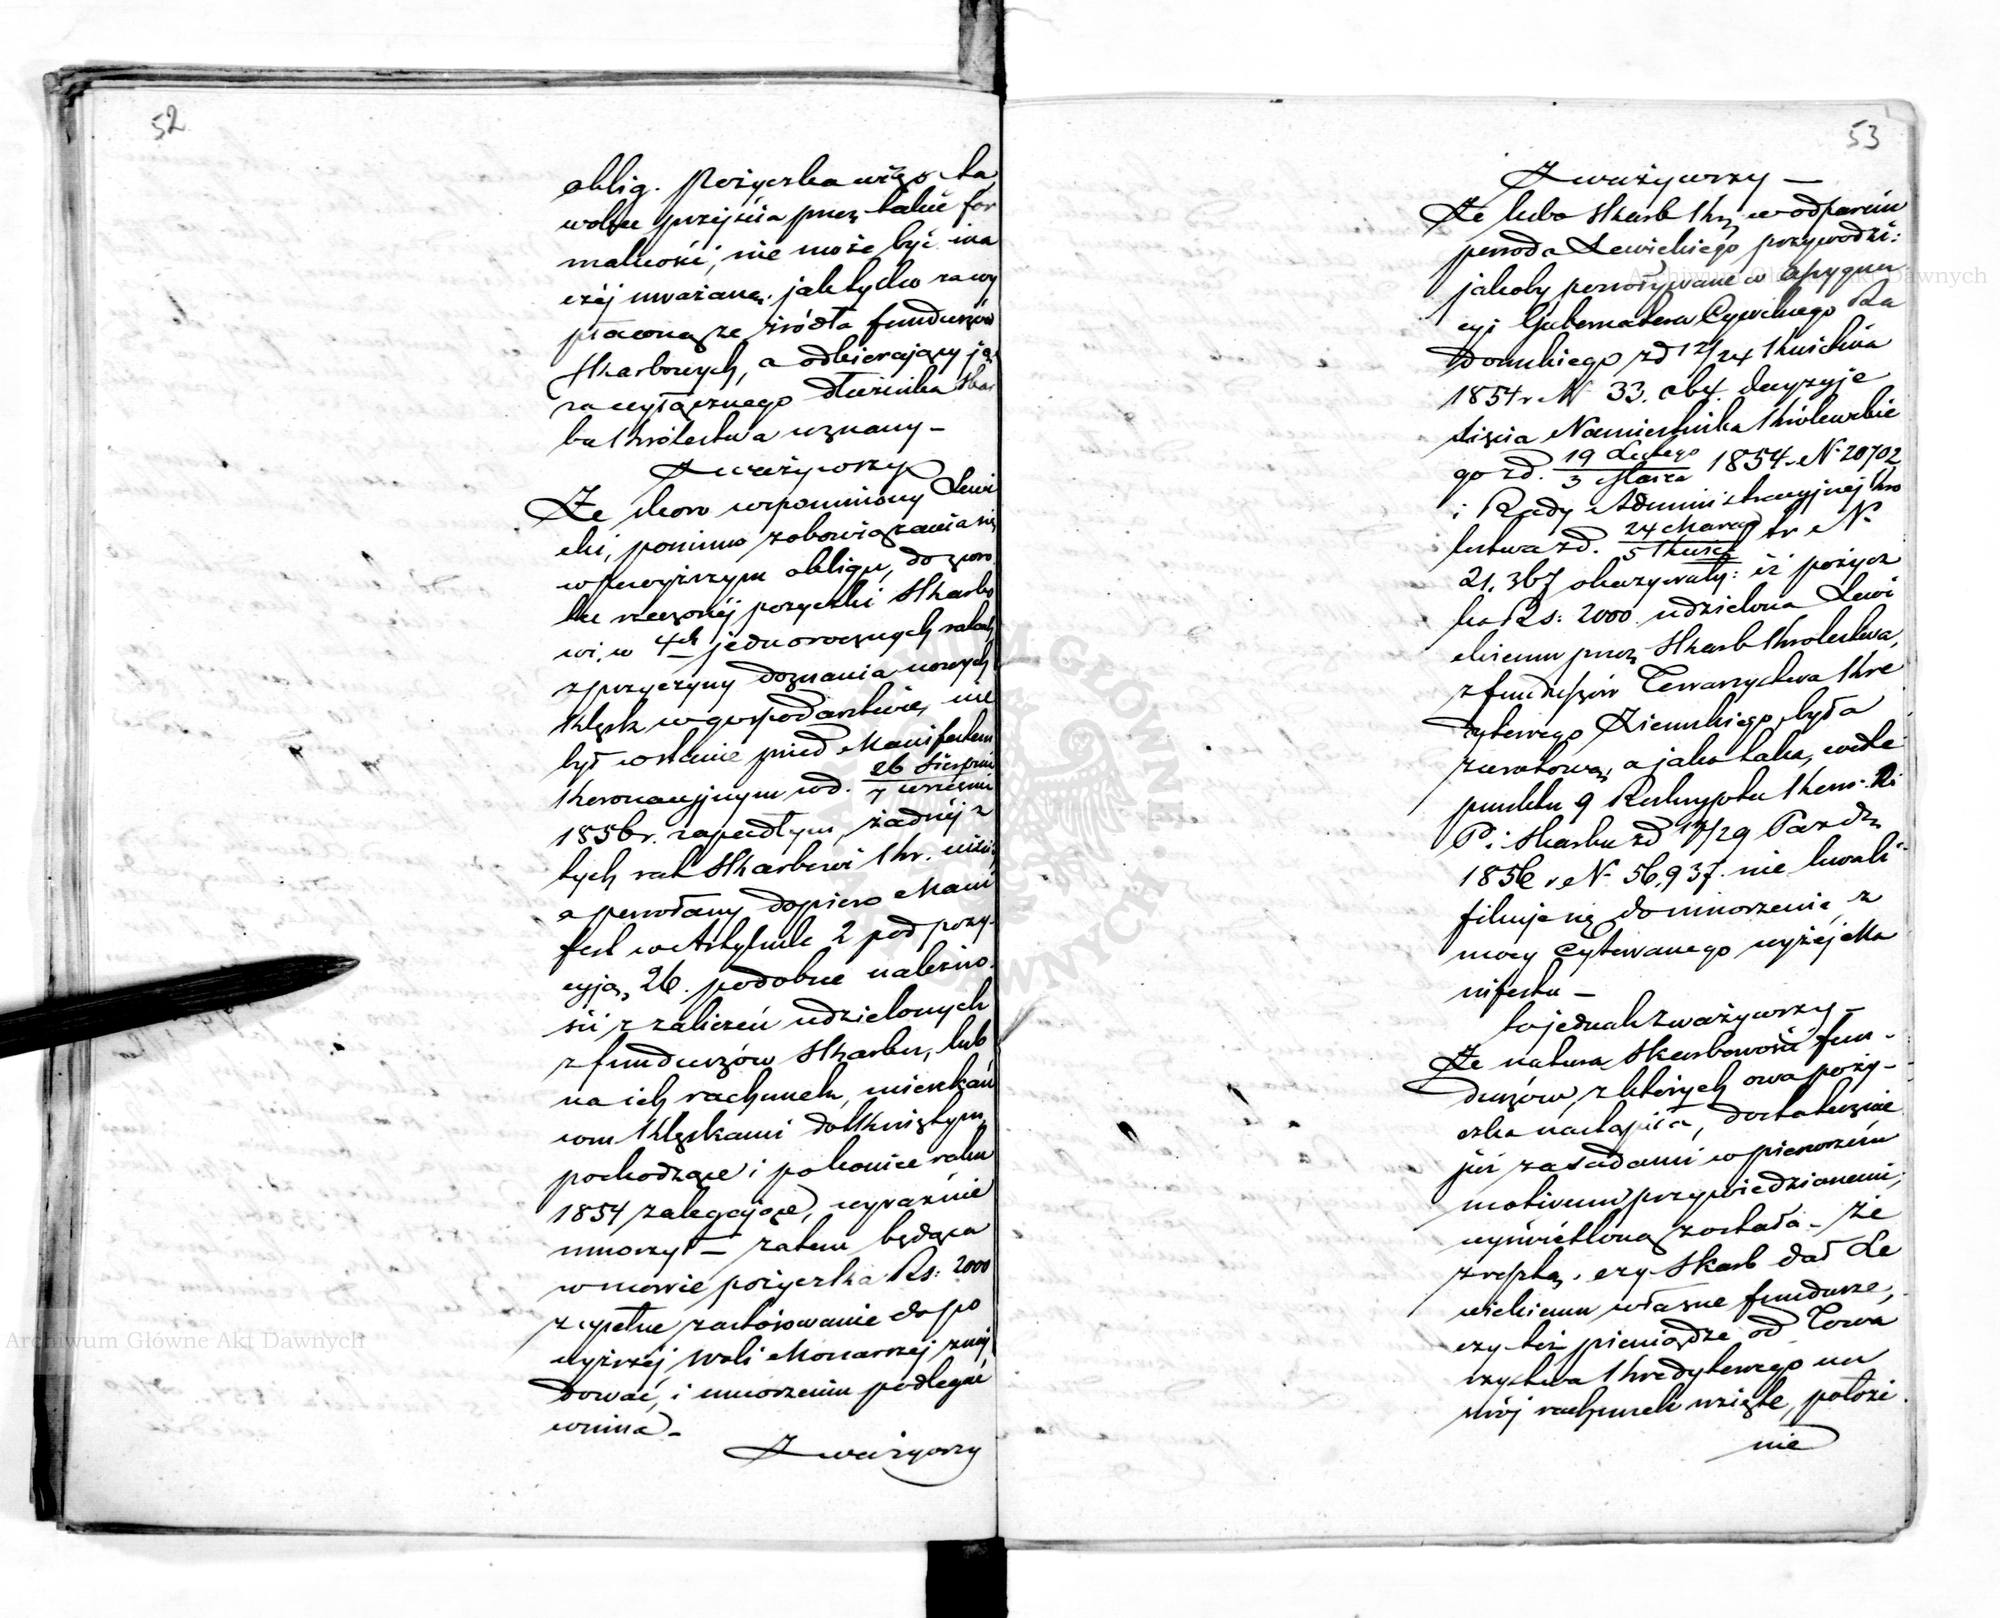 52
oblig. Pożyczka więc ta
wolą przejścia przez takie for
malności, nie może być ina
czéj uważaną, jak tylko za wy
płaconą ze źródła funduszów
Skarbowych, a odbierający ją
za wyłącznego dłużnika Skar
bu Królestwa uznany –
Zważywszy
Że skoro wspomniony Lewi
cki, pomimo zobowiązania się
w powyższym obligu, do zwro
tu rzeczonéj pożyczki Skarbo
wi, w 4ch jednorocznych ratach
z przyczyny doznania nowych
klęsk w gospodarstwie, nie
był w stanie przed Manifestem
Koronacyjnym w d. 26 Sierpnia
7 Września
1856 r. zapadłym, żadnéj z
tych rat Skarbowi Kr. uiścić
a powołany dopiero Mani
fest w Artykule 2 pod pozy-
cyją 26. podobne należno-
ści z zaliczeń udzielonych
z funduszów Skarbu, lub
na ich rachunek, mieszkań
com klęskami dotkniętym,
pochodzące i po koniec roku
1854 zalegające, wyraźnie
umorzył – zatem będąca
w mowie pożyczka Rs: 2000
zupełne zastosowanie do po
wyższéj woli Monarszej znaj
dować, i umorzeniu podlegać
winna –
Zważywszy
53
Zważywszy –
Że lubo Skarb Kr. w odparciu
powoda Lewickiego przywodzi:
jakoby powoływane w assygna
cyi Gubernatora Cywilnego Ra
domskiego z d 12/24 Kwietnia
1854 r N 33. aby decyzyje
Xięcia Namiestnika Królewskie
go z d. 19 Lutego
3 Marca 1854 r. N. 20702
i Rady Administracyjnej Kró
lestwa z d. 24 Marca
5 Kwiet. t.r. N.
21.367 okazywały: iż pożycz
ka Rs: 2000 udzielona Lewi
ckiemu przez Skarb Królestwa,
z funduszów Towarzystwa Kre
dytowego Ziemskiego, była
zwrotową, a jako taka, wedle
punktu 9 Reskryptu Kom. R.
P. i Skarbu z d 17/29 Paźdz.
1856 r N 56,937. nie kwali
fikuje się do umorzenia z
mocy cytowanego wyżéj Ma
nifestu –
to jednak zważywszy –
Że natura Skarbowości fun-
duszów z których owa poży-
czka nastąpiła, dostatecznie
już zasadami w pierwszém
motivum przywiedzionemi,
wyświetloną została. – Że
zresztą, czy Skarb dał Le
wickiemu własne fundusze,
czy też pieniądze od Towa
rzystwa Kredytowego na
swój rachunek wzięte, położe
nie
Archiwum Główne Akt Dawnych
Archiwum Główne Akt Dawnych
ARCHIWUM GŁÓWNE AKT DAWNYCH